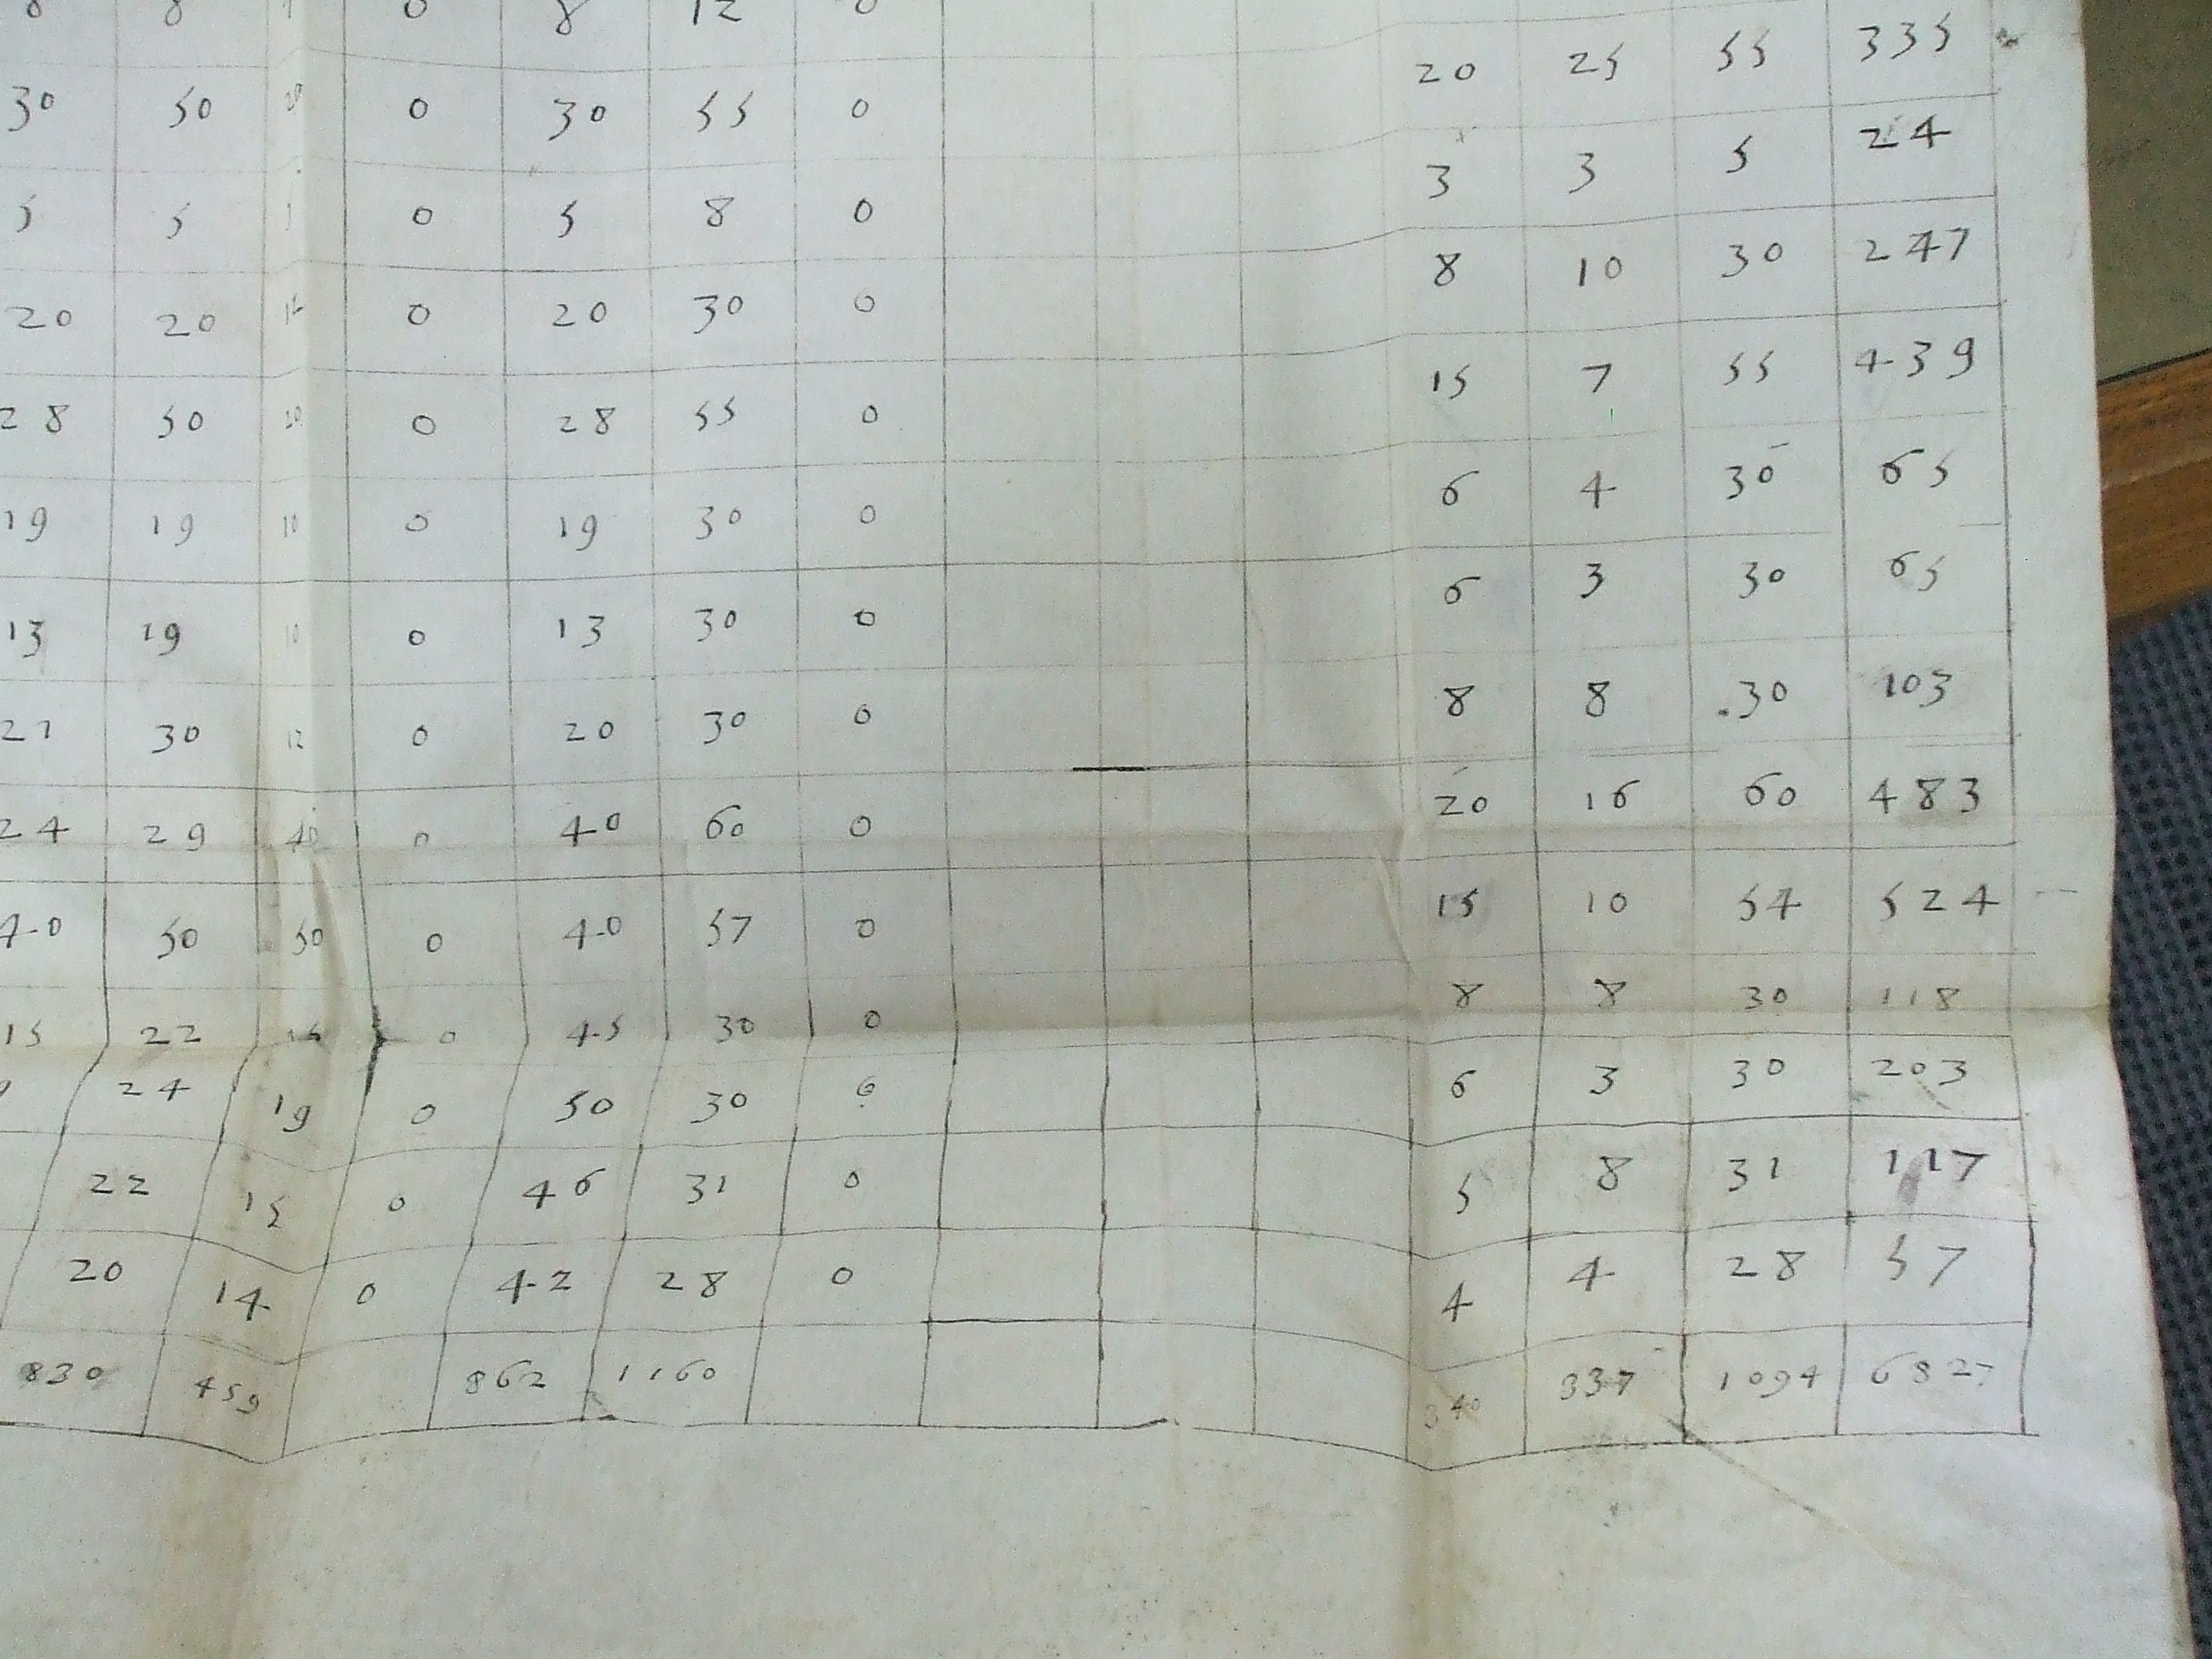 8 8 0 8 12 0
20 25 55 335
30 50 20 0 30 55 0 3 3 5 24
5 5 0 5 8 0 8 10 30 247
20 20 12 0 20 30 0 15 7 55 439
28 50 20 0 28 55 0 6 4 30 65
19 19 10 0 19 30 0 6 3 30 65
13 19 10 0 13 30 0 8 8 30 103
21 30 12 0 20 30 0 20 16 60 483
24 29 40 0 40 60 0 15 10 54 524
40 50 50 0 40 57 0 8 8 30 118
15 22 0 45 30 0 6 3 30 203
24 19 0 50 30 0 5 8 31 117
22 15 0 46 31 0 4 4 28 57
20 14 0 42 28 0
830 459 862 1160 340 337 1094 6827